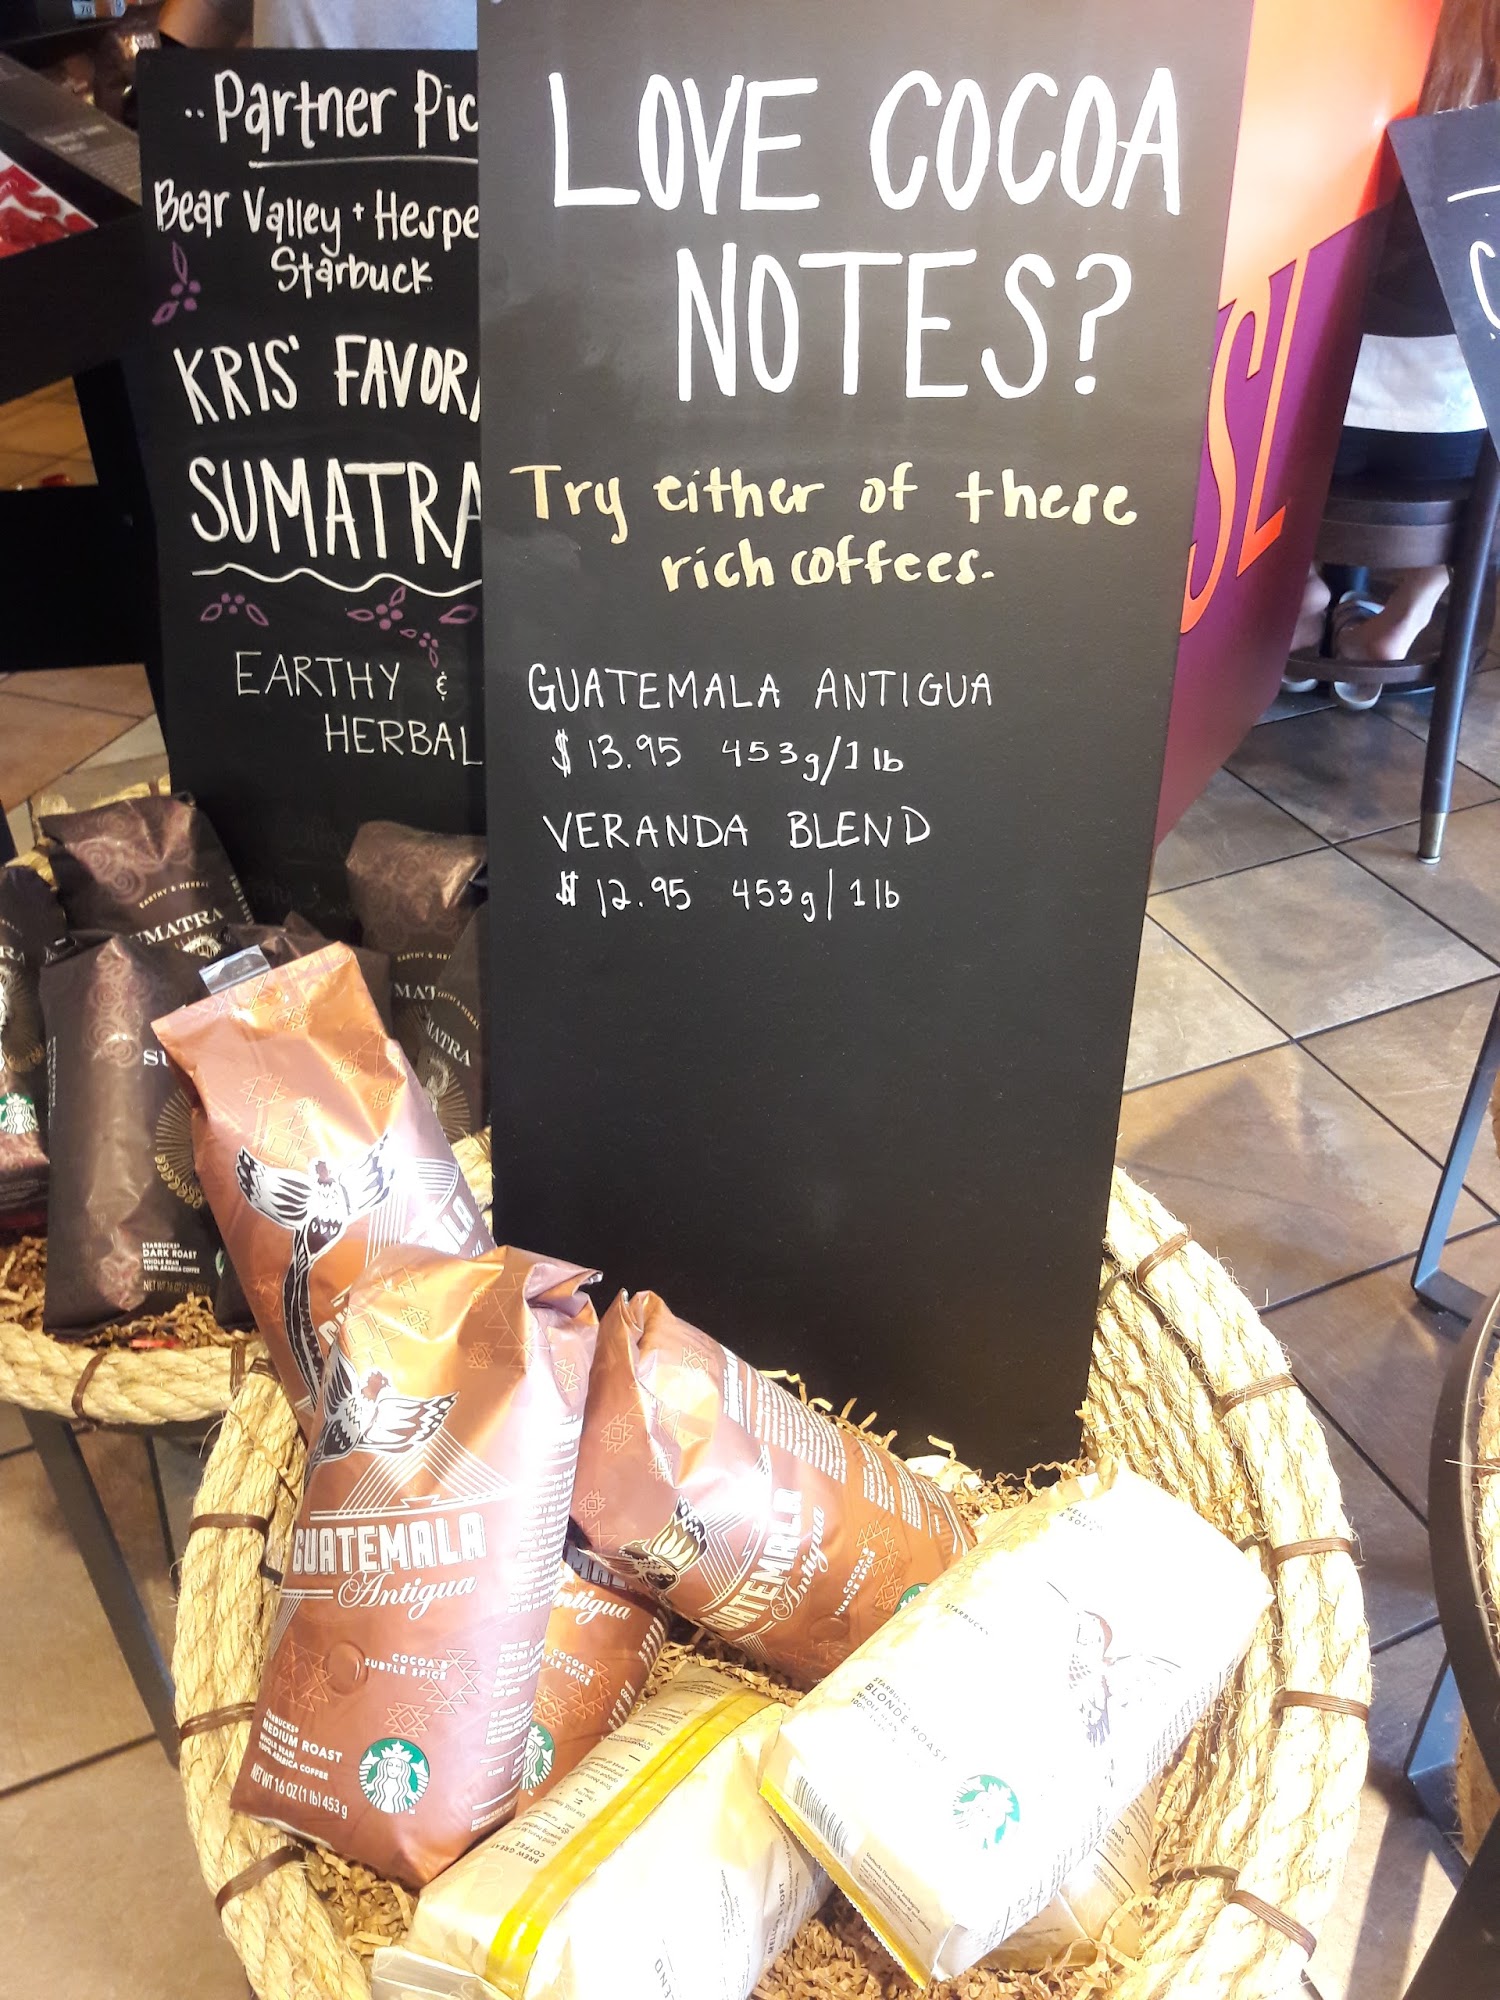 Partner Pic
Bear Valley + Hespe
Starbuck
KRIS' FAVOR
SUMATRA
EARTHY &
HERBAL
LOVE COCOA
NOTES?
Try either of these
rich coffees.
GUATEMALA ANTIGUA
$ 13.95 453g/1 lb
VERANDA BLEND
$ 12.95 453g/1 lb
EARTHY & HERBAL
SUMATRA
MATRA
STARBUCKS®
DARK ROAST
WHOLE BEAN
100% ARABICA COFFEE
GUATEMALA
Antigua
COCOA &
SUBTLE SPICE
STARBUCKS®
MEDIUM ROAST
WHOLE BEAN
100% ARABICA COFFEE
NET WT 16 OZ (1 lb) 453 g
GUATEMALA
Antigua
COCOA &
SUBTLE SPICE
Antigua
COCOA &
SUBTLE SPICE
MELLOW
& SOFT
STARBUCKS
BLONDE ROAST
WHOLE BEAN
BREW GREAT
COFFEE